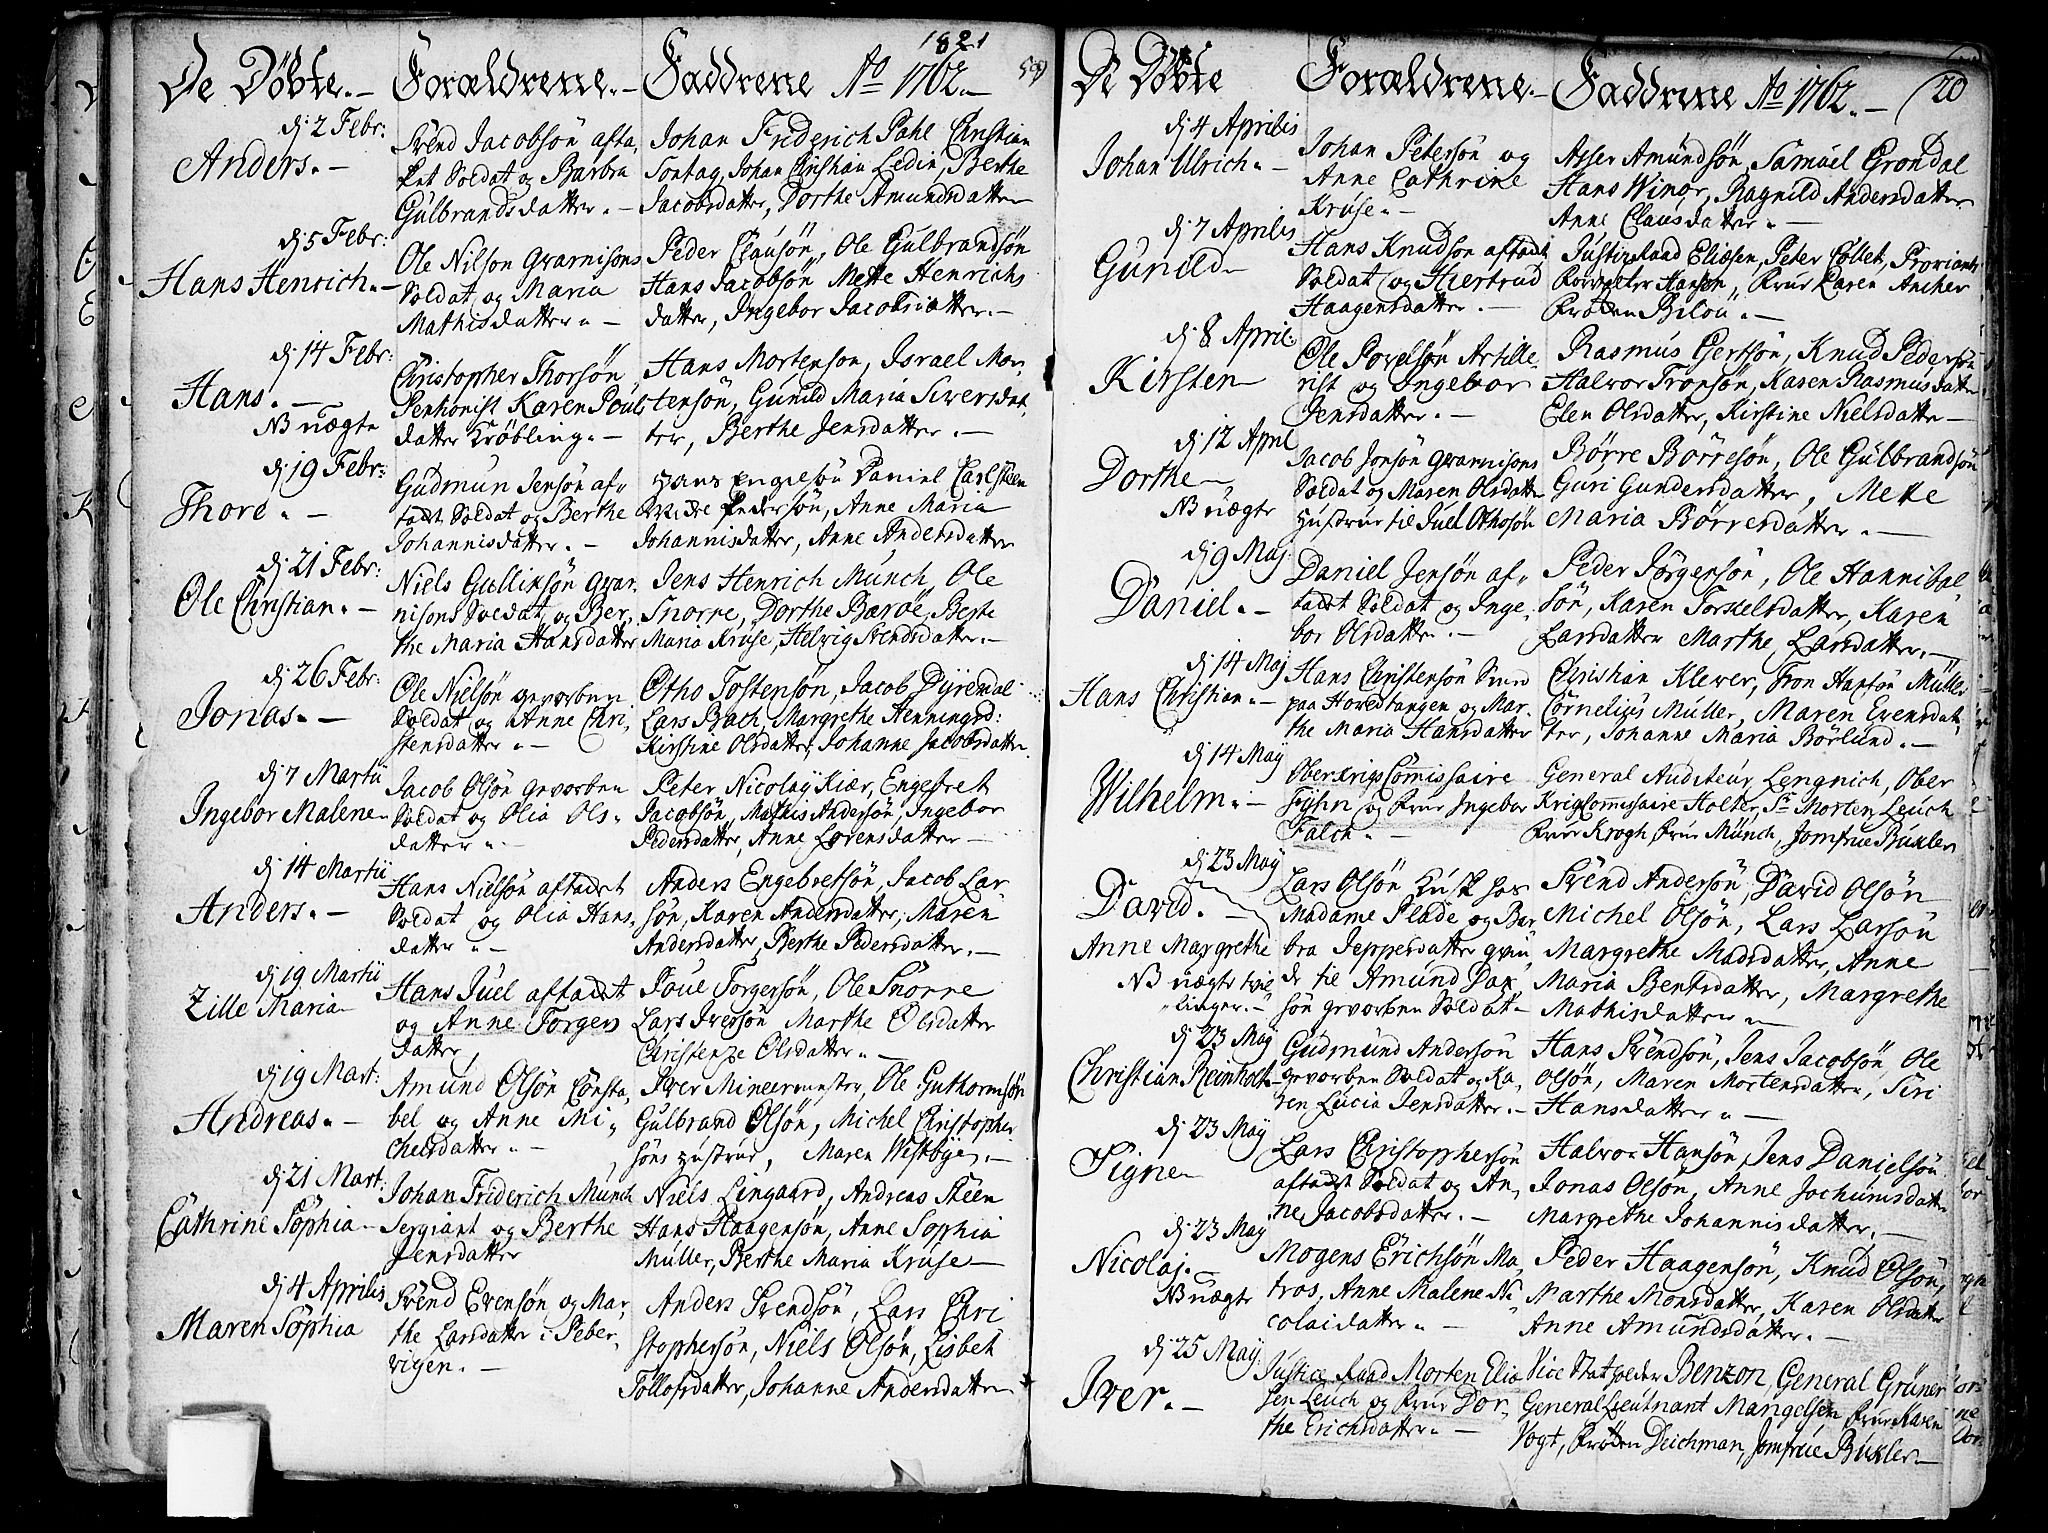 1821
59
De Døbte.- Forældrene.- Faddrene Ao 1762.-
dj 2 Febr:
Anders.-
Svend Jacobsön afta,
ket Soldat og Barbra
Gulbrandsdatter.-
Johan Friderich Pahl Christian
Sontag, Johan Christian Ledin, Berthe
Jacobsdatter, Dorthe Amundsdatter
dj 5 Febr:
Hans Henrich.-
Ole Nilson Gvarnisons
Soldat og Maria
Mathisdatter.-
Peder Clausön, Ole Gulbrandsön
Hans Jacobsön Mette Henrichs
datter, Ingebor Jacobsdatter.-
dj 14 Febr:
Hans.-
NB uægte
Christopher Thorsön,
Pentionist Karen Pouls
datter Kröbling.-
Hans Mortenson, Israel Mor-
tensön, Gunild Maria Siversdat,
ter, Berthe Jensdatter.-
dj 19 Febr:
Thore.-
Gudmun Jensön af,
tadt Soldat og Berthe
Johannisdatter.-
Hans Engelsön Daniel Carlsteen
Peder Pedersön, Anne Maria
Johannisdatter, Anne Andersdatter
dj 21 Febr:
Ole Christian.-
Niels Gullinksön Gvar,
nisons Soldat, og Ber,
the Maria Hansdatter
Jens Henrich Munch, Ole
Snorre, Dorthe Baröe, Berte
Maria Kruse, Helvig Svendsdatter.-
dj 26 Febr:
Jonas.-
Ole Nielsön gevorben
Soldat og Anne Chri,
stensdatter.-
Otho Tostensön, Jacob Dyrendal
Lars Brach, Margrethe Henningsd:
Kirstine Olsdatter, Johanne Jacobsdatter
dj 7 Martii
Ingebor Malene-
Jacob Olsön gevorben
Soldat og Olia Ols-
datter.-
Peter Nicolay Kiær, Engebret
Jacobsön, Mathis Andersön, Ingebor
Pedersdatter, Anne Lorensdatter-
dj 14 Martii
Anders.-
Hans Nielsön aftadet
Soldat og Olia Hans,
datter.-
Anders Engebretsön, Jacob Lar
sön, Karen Andersdatter, Maren
Andersdatter, Berthe Pedersdatter.-
dj 19 Martii
Zille Maria-
Hans Juel aftadet
og Anne Torgers
datter
Poul Torgersön, Ole Snorre
Lars Iversön Marthe Olsdatter
Christenze Olsdatter.-
dj 19 Mart:
Andreas.-
Amund Olsön Consta,
bel og Anne Mi,
chelsdatter.-
Iver Mineermester, Ole Guthormsön
Gulbrand Olsön, Michel Christopher
söns Hustrue, Maren Westbye.-
dj 21 Mart:
Cathrine Sophia-
Johan Friderich Munch
Sergiant og Berthe
Jensdatter
Niels Lingaard, Andreas Steen
Hans Haagensön, Anne Sophia
Müller, Berthe Maria Kruse-
dj 4 Aprilis
Maren Sophia
Svend Evensön og Mar,
the Larsdatter i Peber,
vigen.-
Anders Svendsön, Lars Chri
stophersön, Niels Olsön, Lisbet
Tollofsdatter, Johanne Andersdatter
20
De Döbte Forældrene.- Faddrene Ao 1762.-
dj 4 Aprilis
Johan Ulrich.-
Johan Petersön og
Anne Cathrine
Kruse.-
Asser Amundsön, Samuel Grondal
Hans Winör, Ragnild Andersdatter
Anne Clausdatter.-
dj 7 Aprilis
Gunild-
Hans Knudsön aftadt
Soldat og Hiertrud
Haagensdatter.-
Justiz Raad Eliæsen, Peter Collet, Proviant
Forvalter Hanson, Frur Karen Ancher
Fröken Bilou.-
dj 8 April:
Kirsten-
Ole Povelsön Artille,
rist og Ingebor
Jensdatter.-
Rasmus Gertsön, Knud Pedersön
Halvor Tronsön, Karen Rasmusdatter
Elen Olsdatter, Kirstine Nielsdatter-
dj 12 April
Dorthe-
NB uægte
Jacob Jonsön Gvarnisons
Soldat og Maren Olsdatter
Hustrue til Juel Othosön
Börre Börresön, Ole Gulbrandsön
Guri Gundersdatter, Mette
Maria Börresdatter.-
dj 9 Maj
Daniel.-
Daniel Jensön af,
tadt Soldat og Inge,
bor Olsdatter.-
Peder Jörgensön, Ole Hannibal
sön, Karen Torkelsdatter, Karen
Larsdatter Marthe Larsdatter.-
dj 14 Maj
Hans Christian.-
Hans Christensön Smed
paa Hovedtangen og Mar-
the Maria Hansdatter
Christian Klever, Tron Hansön Müller
Cornelius Müller, Maren Evensdat,
ter, Johanne Maria Börlund.-
dj 14 May
Wilhelm.-
Oberkrigs Comissaire
Fyhn og Frur Ingebor
Falch.-
General Auditeur Lengnich, Ober
Krigscomissaire Holter, Sr Morten Leuch
Frur Krogh, Frur Munch, Jomfrue Buxler
dj 23 May
David.-
Anne Margrethe
NB uægte tvil
linger.-
Lars Olsön Kusk hos
Madame Plade og Bar
bra Jeppesdatter qvin,
de til Amund Dax,
sön gevorben Soldat-
Svend Andersön, David Olsön
Michel Olsön, Lars Larsön
Margrethe Madsdatter, Anne
Maria Bentsdatter, Margrethe
Mathisdatter.-
dj 23 May
Christian Reinholt-
Gudmund Andersön
gevorben Soldat og Ka,
ren Lucia Jensdatter.-
Hans Svendsön, Jens Jacobsön Ole
Olsön, Maren Mortensdatter, Siri
Hansdatter.-
dj 23 May
Signe-
Lars Christophersön
aftadt Soldat og An,
ne Jacobsdatter.-
Halvor Hansön, Jens Danielsön
Jonas Olsön, Anne Jochumsdatter
Margrethe Johannisdatter.-
dj 23 May
Nicolaj.-
NB uægte
Mogens Erichsön Ma,
tros, Anne Malene Ni
colaidatter.-
Peder Haagensön, Knud Olsön,
Marthe Monsdatter, Karen Olsdatter
Anne Amundsdatter.-
dj 25 May:
Iver.-
Justice Raad Morten Eliæ
sen Leuch og Frur Dor,
the Erichsdatter.-
Vice Statholder Benzon, General Grüner
General Lieutnant Mangelsen Frur Karen
Vogt, Fröken Deichman, Jomfrue Buxler-